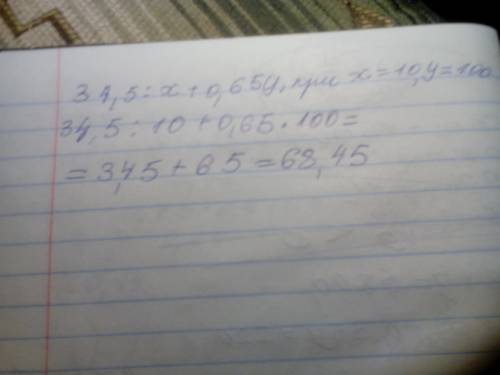 34,5:x+0,65y, при x=10, y=100
34,5:10+0,65·100=
=3,45+65=68,45